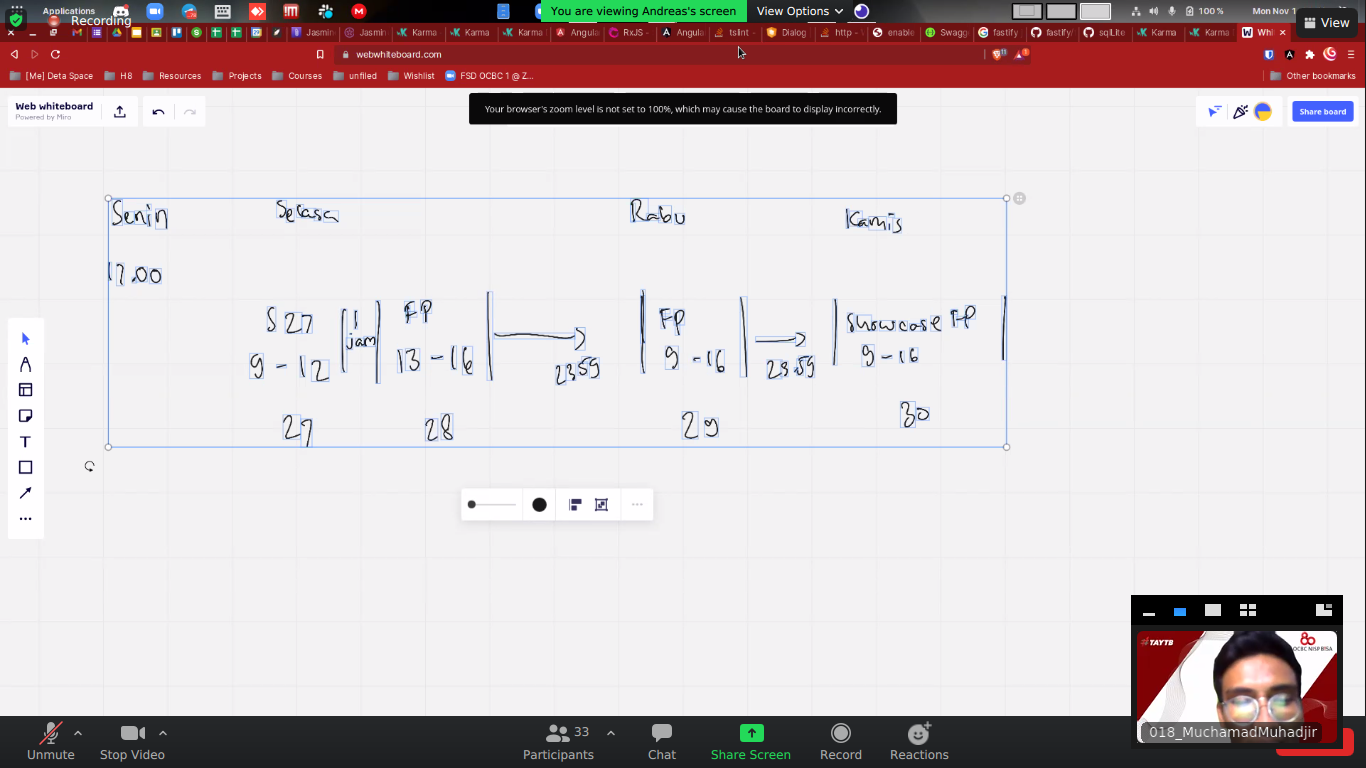 Applications
Recording
You are viewing Andreas's screen
View Options
100 %
Mon Nov 1
View
Karma
Jasmin
Jasmin
Karma
Karma
Karma
Angula
RxJS -
Angula
tslint -
Dialog
http -
enable
Swagg
fastify
fastify/
sqlLite
Karma
Karma
Whi
webwhiteboard.com
[Me] Deta Space
H8
Resources
Projects
Courses
unfiled
Wishlist
FSD OCBC 1 @ Z...
Other bookmarks
Web whiteboard
Powered by Miro
Your browser's zoom level is not set to 100%, which may cause the board to display incorrectly.
Share board
Senin
Selasa
Rabu
Kamis
17.00
S 27
1
jam
FP
FP
Showcase FP
9 - 12
13 - 16
23.59
9 - 16
23.59
9 - 16
27
28
29
30
#TAYTB
80
OCBC NISP BISA
018_MuchamadMuhadjir
Unmute
Stop Video
Participants
33
Chat
Share Screen
Record
Reactions